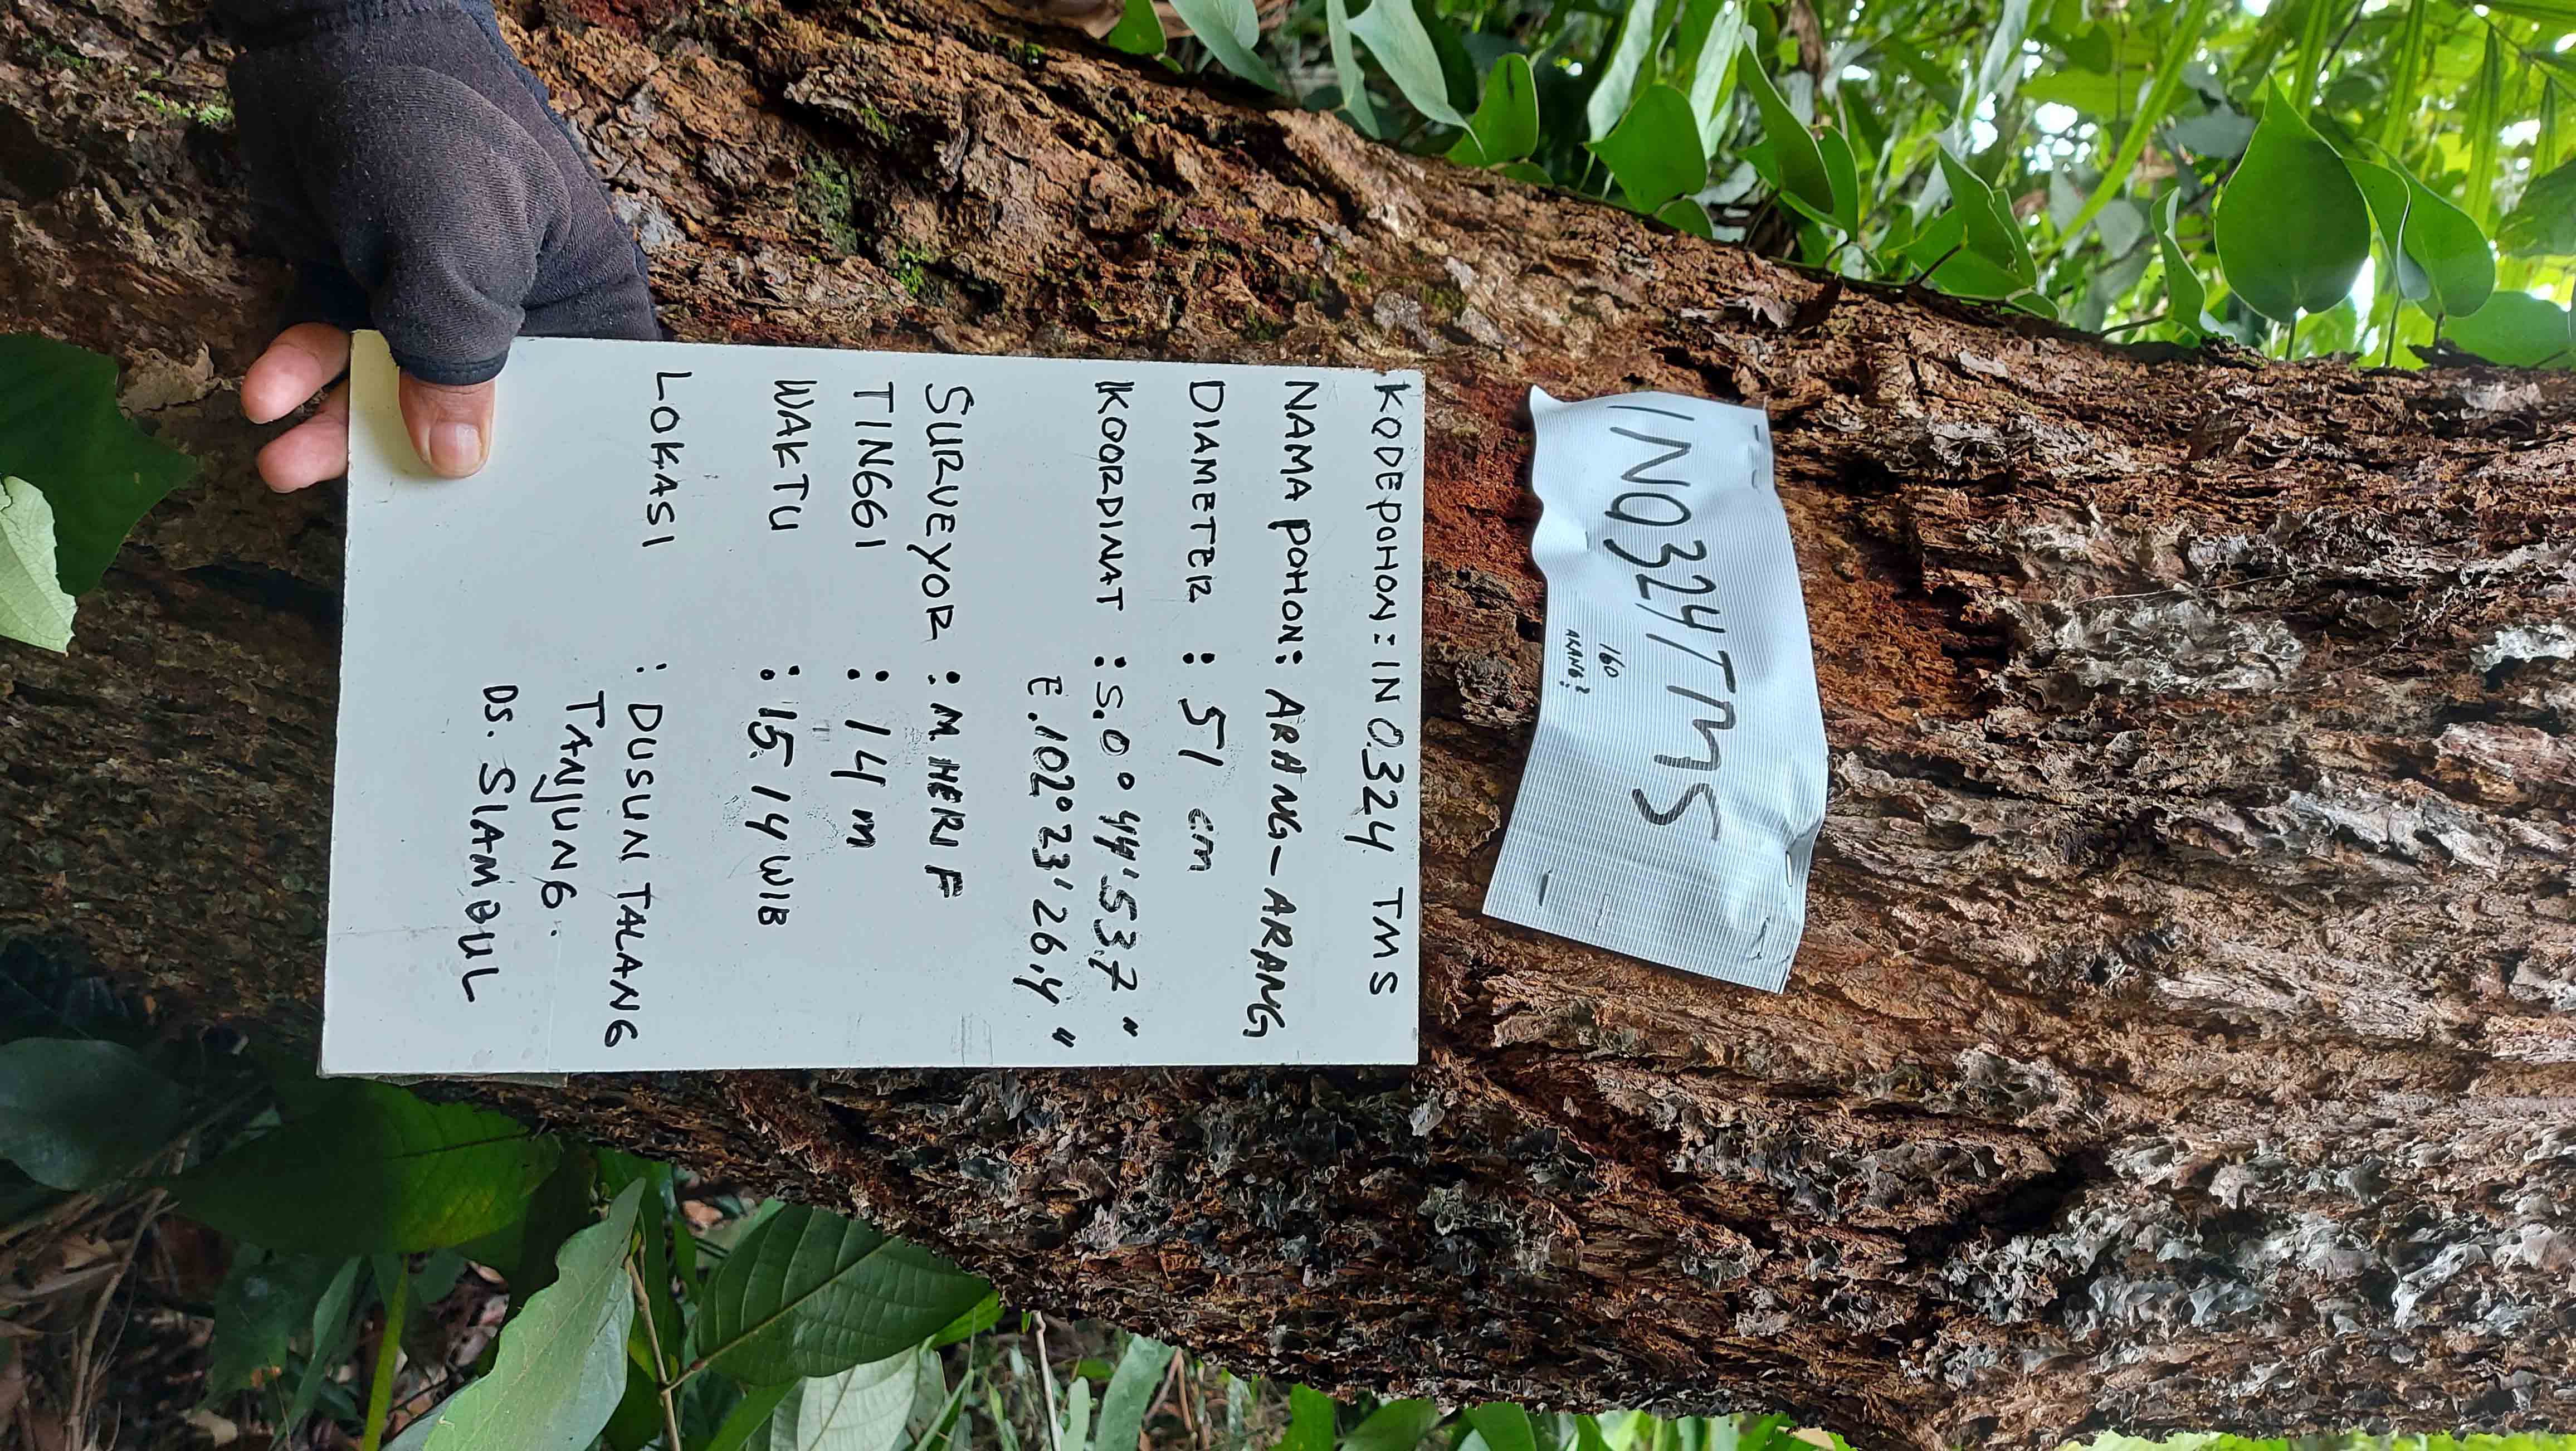 IN0324TMS
160
ARANG2
KODE POHON : IN 0.324 TMS
NAMA POHON : ARANG - ARANG
DIAMETER : 51 cm
KOORDINAT : S.0° 44' 53.7 "
E.102° 23' 26.4 "
SURVEYOR : M. HERI F
TINGGI : 14 m
WAKTU : 15.14 WIB
LOKASI : DUSUN TALANG
TANJUNG.
DS. SIAMBUL